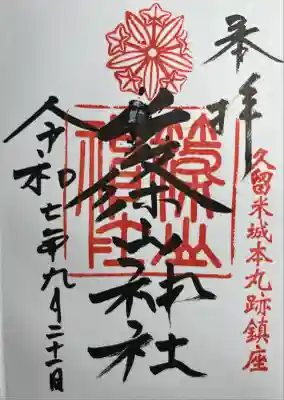 奉拝
久留米城本丸跡鎮座
篠山神社
令和七年九月二十一日